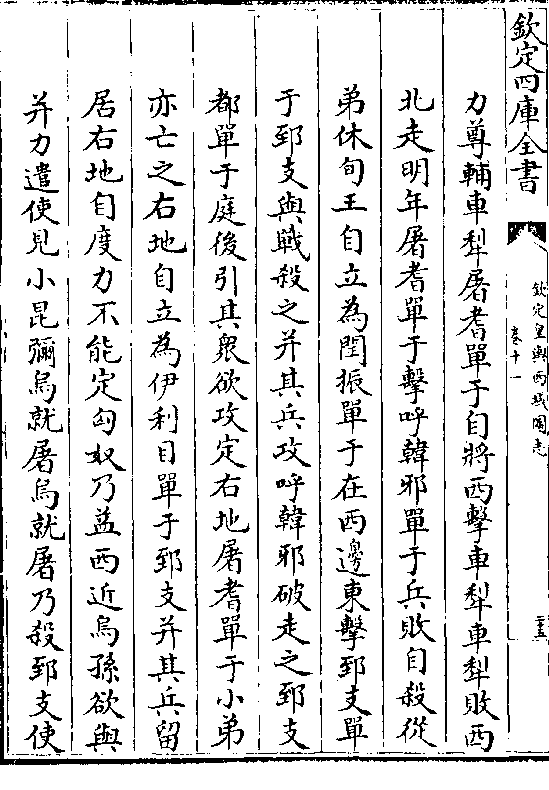 欽定四庫全書
欽定皇輿西域圖志
卷十一
力尊輔車犁屠耆單于自將西擊車犁車犁敗西
北走明年屠耆單于擊呼韓邪單于兵敗自殺從
弟休旬王自立為閏振單于在西邊東擊郅支單
于郅支與戰殺之并其兵攻呼韓邪破走之郅支
都單于庭後引其衆欲攻定右地屠耆單于小弟
亦亡之右地自立為伊利目單于郅支并其兵留
居右地自度力不能定匈奴乃益西近烏孫欲與
并力遣使見小昆彌烏就屠烏就屠乃殺郅支使